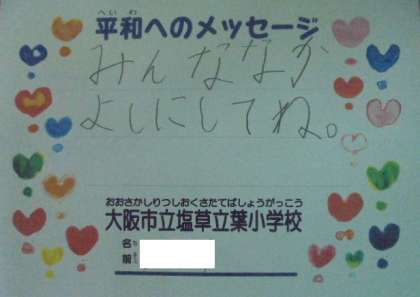 へいわ
平和へのメッセージ
みんななか
よしにしてね。
おおさかしりつしおくさたてばしょうがっこう
大阪市立塩草立葉小学校
な
名
まえ
前